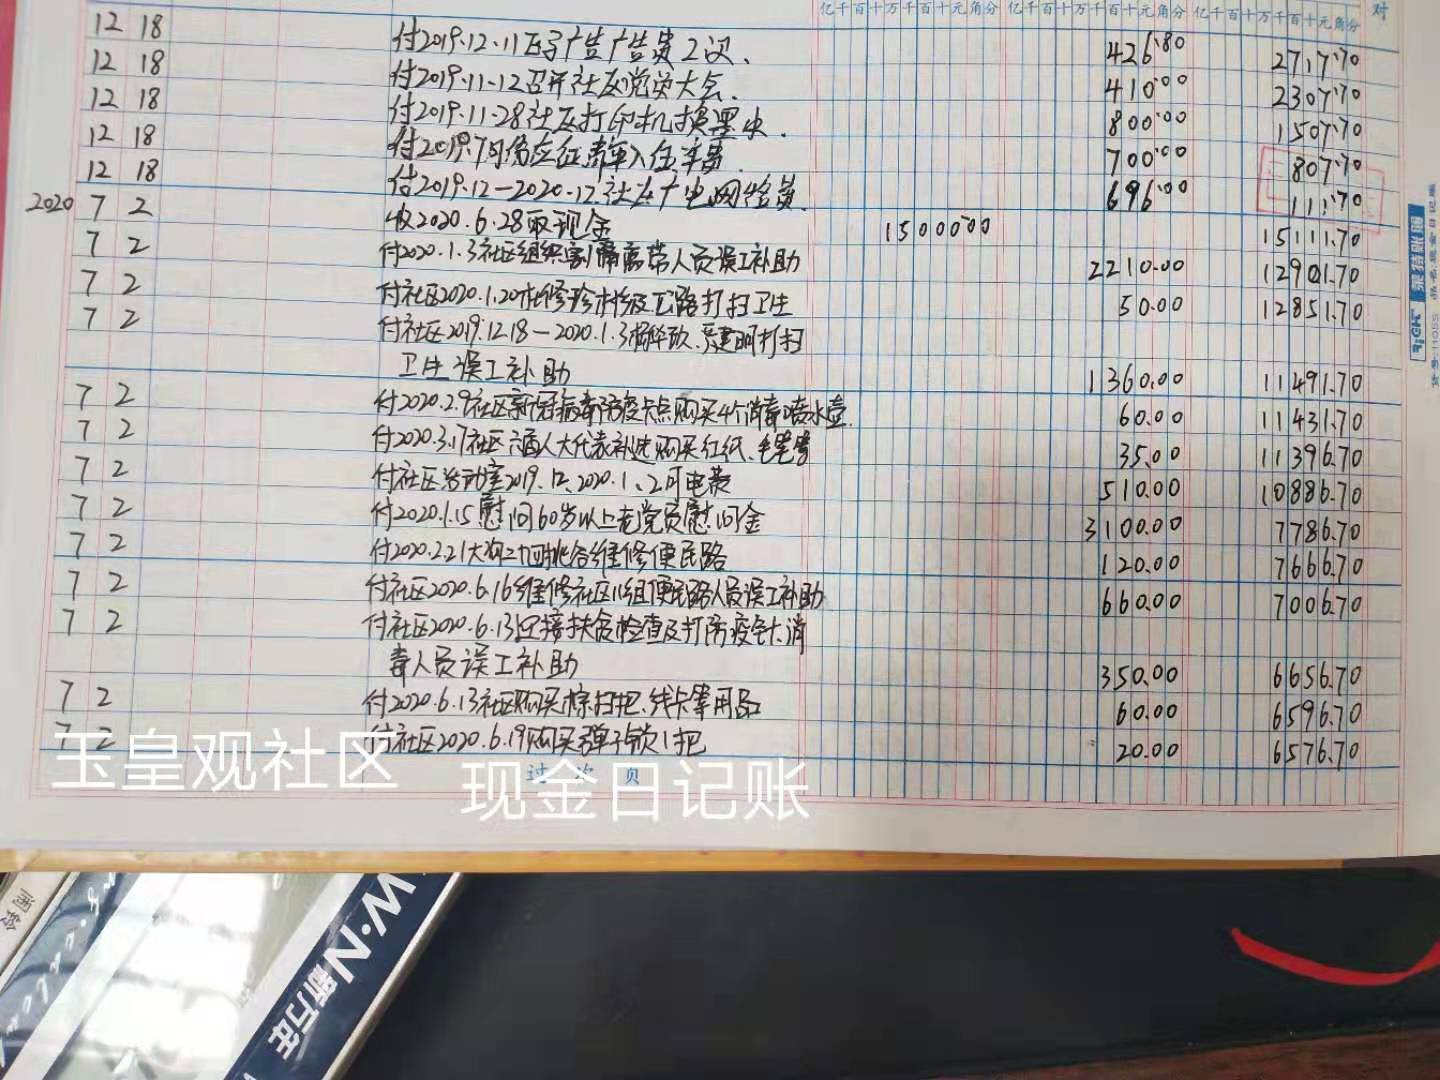 亿千百十万千百十元角分 亿千百十万千百十元角分 亿千百十万千百十元角分 对
12 18 付2019.12.11电子广告广告费2次、 426.80 2717.70
12 18 付2019.11-12召开社区党员大会、 410.00 2307.70
12 18 付2019.11-28社区打印机换墨水. 800.00 1507.70
12 18 付2019.7月份应征青年入住 700.00 807.70
12 18 付2019.12—2020.12.社区广电网络费. 696.00 111.70
2020 7 2 收2020.6.28取现金 15000.00 15111.70
7 2 付2020.1.3社区组织割隔离带人员误工补助 2210.00 12901.70
7 2 付社区2020.1.20杜修珍村级公路打扫卫生 50.00 12851.70
7 2 付社区2019.12.18—2020.1.3 严建明打扫
卫生误工补助 1360.00 11491.70
7 2 付2020.2.9社区新冠病毒防疫卡点购买4个消毒喷水壶. 60.00 11431.70
7 2 付2020.3.17社区 人大代表补选购买红纸、毛笔等 35.00 11396.70
7 2 付社区活动室2019.12、2020.1、2月电费 510.00 10886.70
7 2 付2020.1.15慰问60岁以上老党员慰问金 3100.00 7786.70
7 2 付2020.2.21大沟 维修便民路 120.00 7666.70
7 2 付社区2020.6.16维修社区 组便民路人员误工补助 660.00 7006.70
7 2 付社区2020.6.13迎接扶贫检查及打防疫针、消
毒人员误工补助 350.00 6656.70
7 2 付2020.6.13社区购买棕扫把、线卡等用品 60.00 6596.70
7 2 付社区2020.6.19购买弹子锁1把 20.00 6576.70
过次页
玉皇观社区 现金日记账
莱特账册
W·N新万年